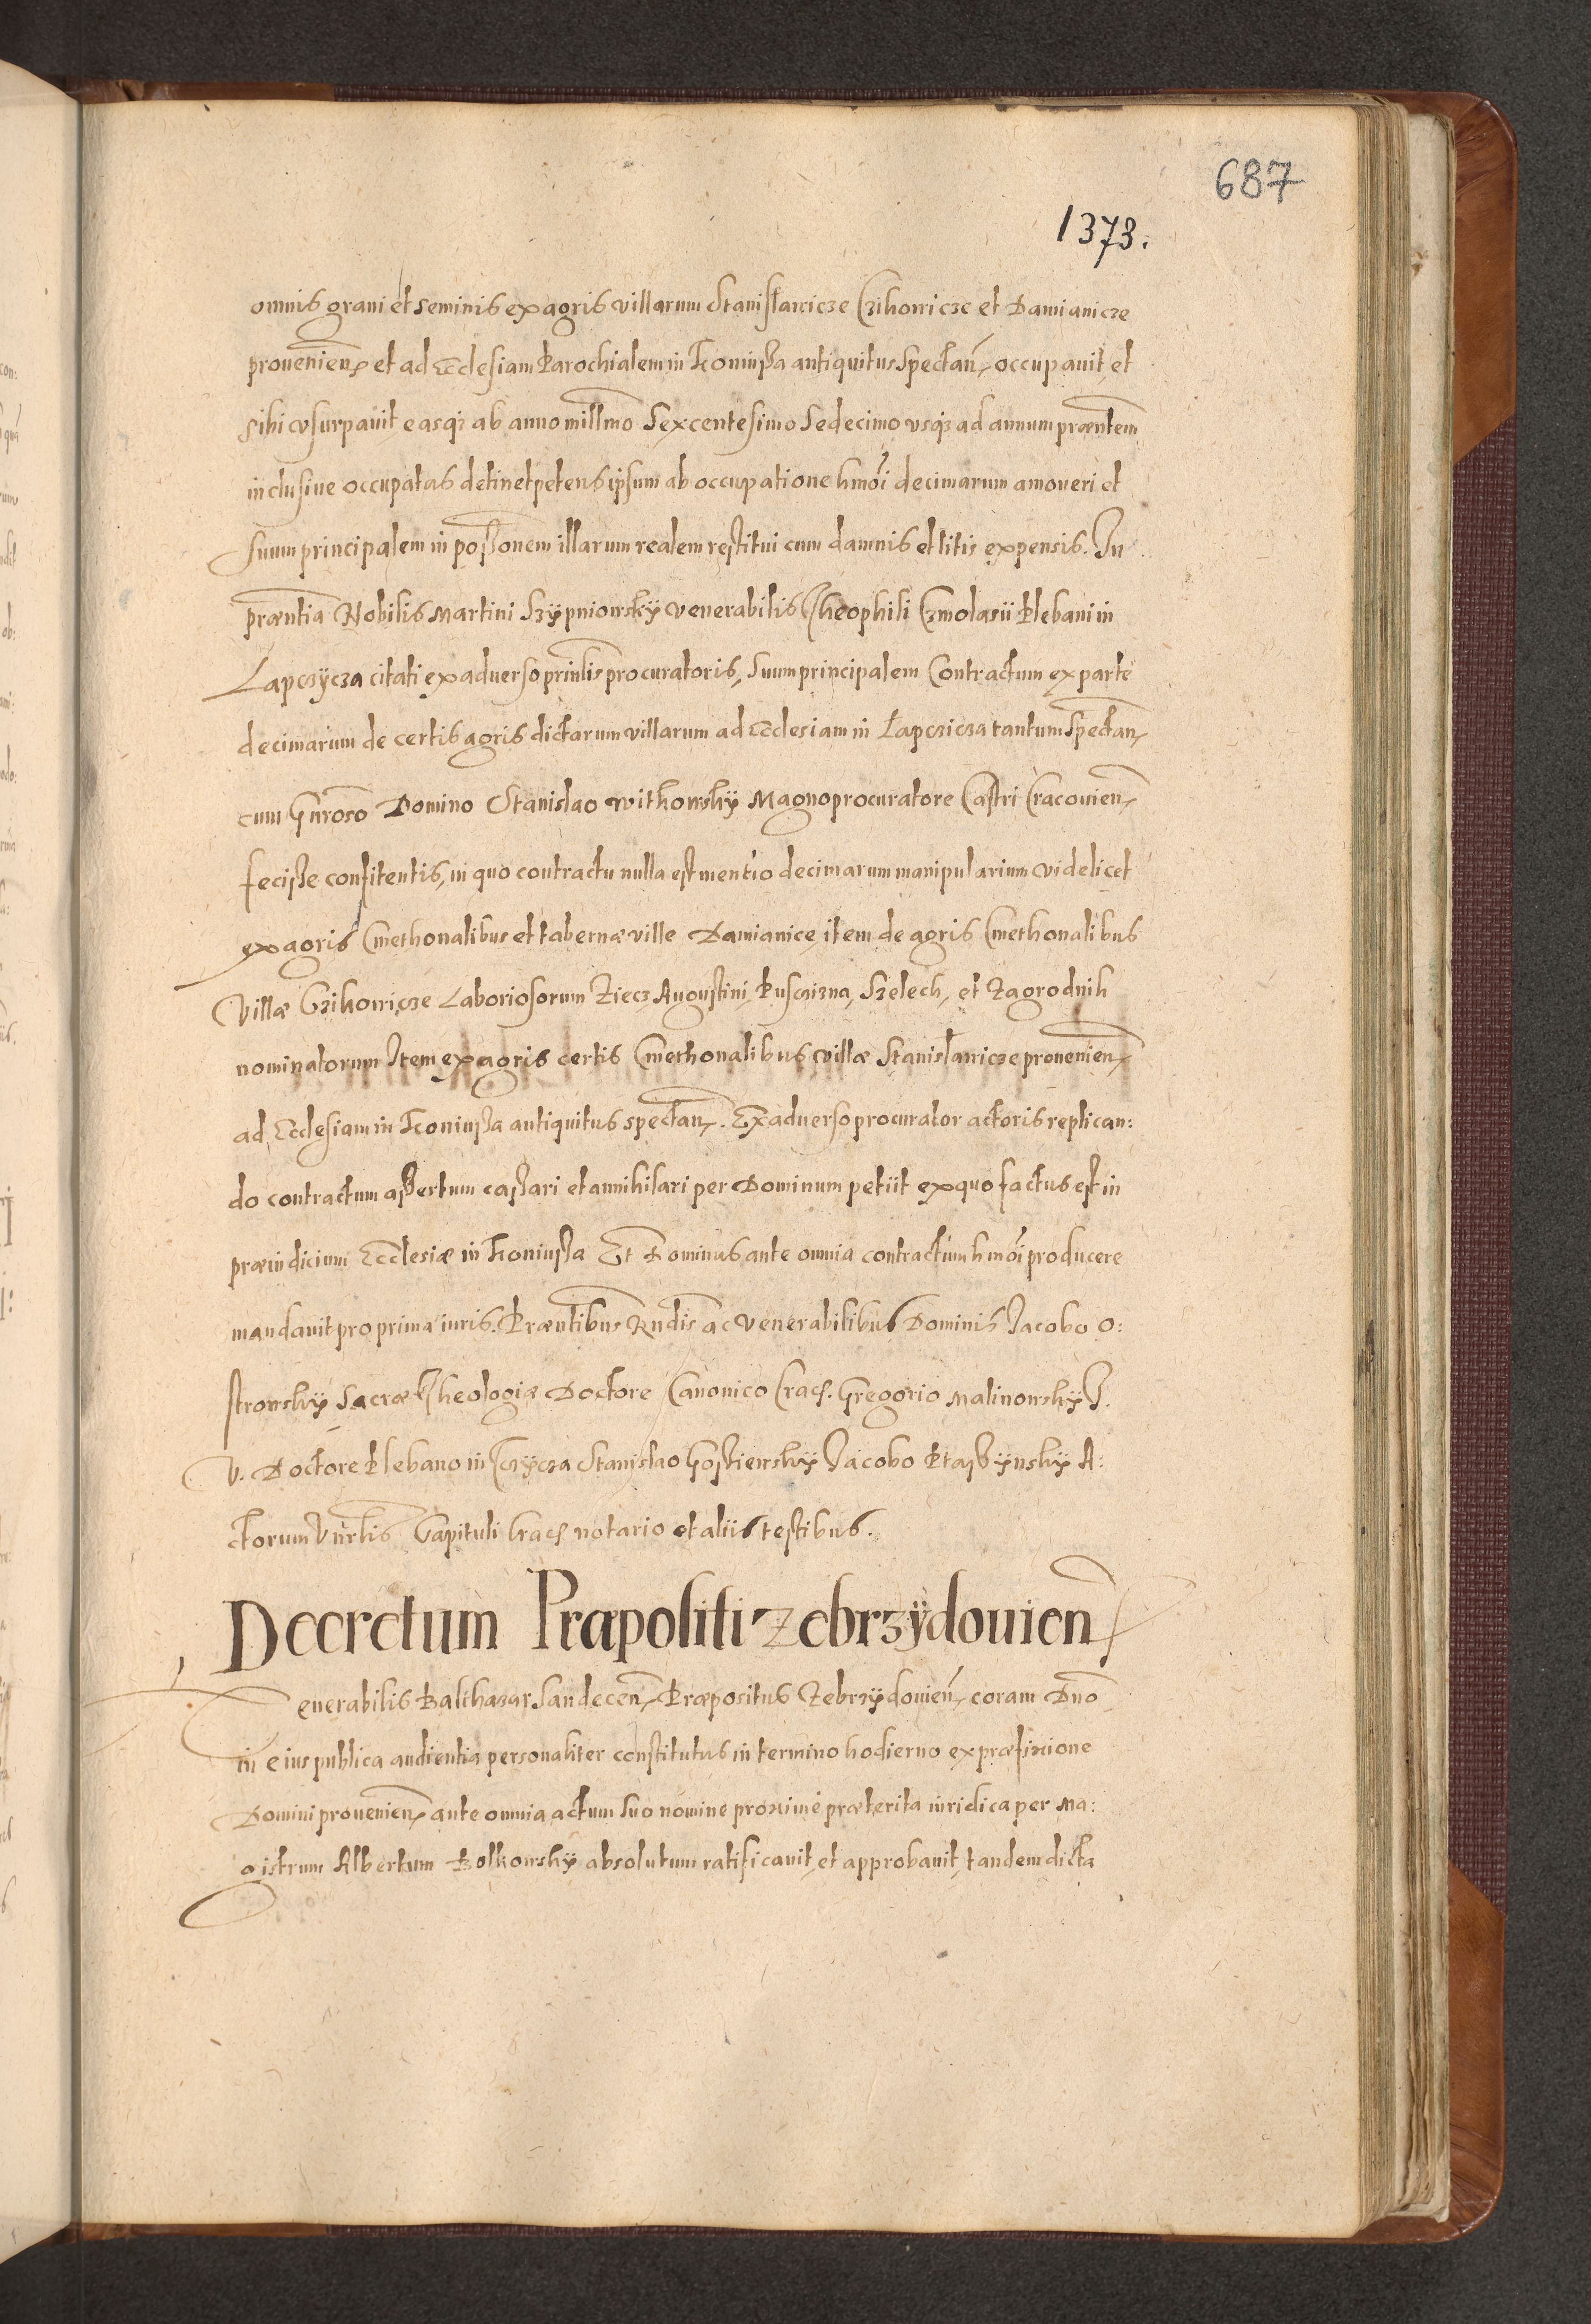 687
1373.
omnis grani et seminis ex agris villarum Stanisławicze Czihowicze et Damianicze
provenien̄ et ad Ecclesiam Parochialem in Koniussa antiquitus spectan̄, occupavit, et
sibi vsurpavit easqȝ ab anno millm̄o sexcentesimo sedecimo vsqȝ ad annum præn̄tem
inclusive occupatas detinet petens ipsum ab occupatione hm̄oi decimarum amoveri et
suum principalem in possōnem illarum realem restitui cum damnis et litis expensis. In
præn̄tia Nobilis Martini Szÿpniowskÿ venerabilis Theophili Czmolasii Plebani in
Lapczÿcza citati ex adverso prin̄lis procuratoris, suum principalem Contractum ex parte
decimarum de certis agris dictarum villarum ad Ecclesiam in Łapczicza tantum spectan̄,
cum Gn̄roso Domino Stanislao Withowskÿ Magnoprocuratore Castri Cracovien̄,
fecisse confitentis, in quo contractu nulla est mentio decimarum manipularium videlicet
ex agris Cmethonalibus et tabernæ ville Damianice, item de agris Cmethonalibus
villæ Czihowicze Laboriosorum Ziecz, Augustini, Puscizna, Szelech, et Zagrodnik
nominatorum Item ex agris certis Cmethonalibus villæ Stanisławicze provenien̄,
ad Ecclesiam in Koniussa antiquitus spectan̄. Ex adverso procurator actoris replican:
do contractum assertum cassari et annihilari per Dominum petiit ex quo factus est in
præiudicium Ecclesiæ in Koniussa Et Dominus ante omnia contractum hm̄oi producere
mandavit pro prima iuris. Præn̄tibus Rn̄dis ac Venerabilibus Dominis Jacobo O:
strowskÿ Sacræ Theologiæ Doctore Canonico Crac̄. Gregorio Malinowskÿ J.
V. Doctore Plebano in Czÿcza Stanislao Gossiewskÿ Jacobo Ptassÿnskÿ A:
ctorum Vn̄rlis Capituli Crac̄ notario et aliis testibus.
Decretum Præpositi Zebrzÿdovien̄
Venerabilis Balthazar Sandecen̄, Præpositus Zebrzÿdovien̄, coram Dn̄o
in eius publica audientia personaliter constitutus in termino hodierno ex præfixione
Domini provenien̄, ante omnia actum suo nomine proxime præterita iuridica per Ma:
gistrum Albertum Bolkowskÿ absolutum ratificavit, et approbavit, tandem dicta